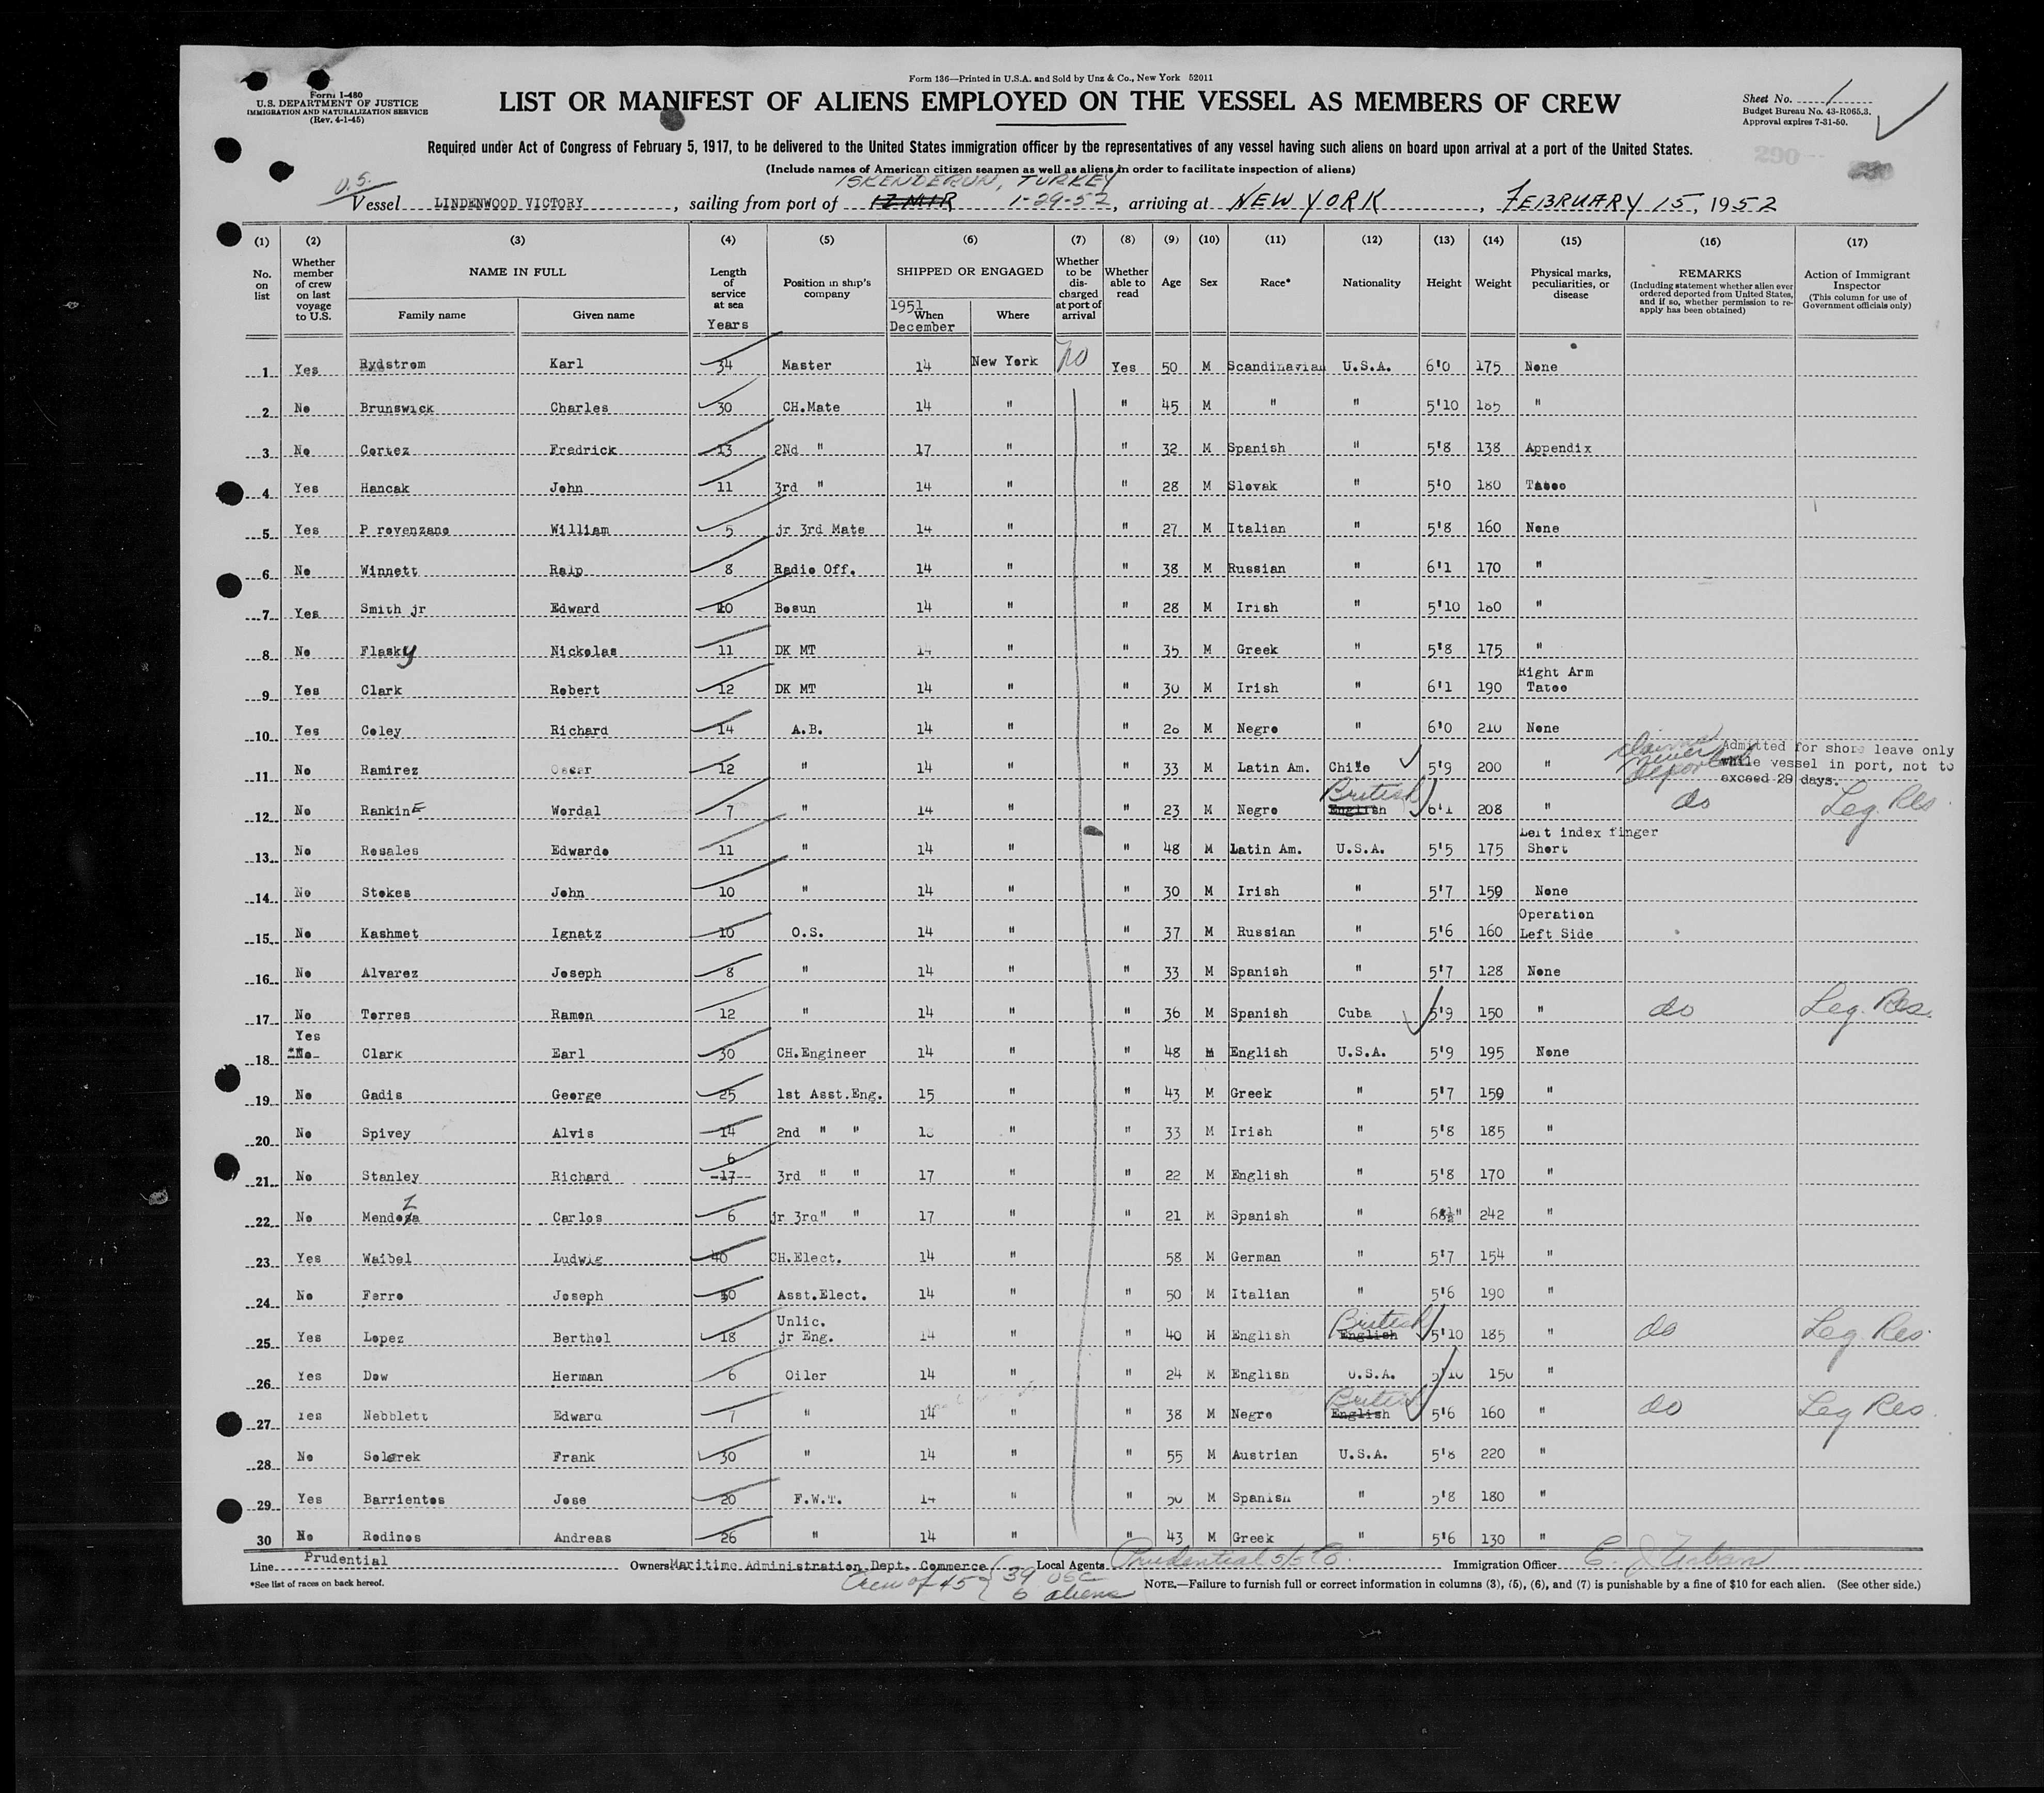 Form 136—Printed in U.S.A. and Sold by Unz & Co., New York 52011
Form I-480
U.S. DEPARTMENT OF JUSTICE
IMMIGRATION AND NATURALIZATION SERVICE
(Rev. 4-1-45)
LIST OR MANIFEST OF ALIENS EMPLOYED ON THE VESSEL AS MEMBERS OF CREW
Sheet No. 1
Budget Bureau No. 43-R065.3.
Approval expires 7-31-50.
Required under Act of Congress of February 5, 1917, to be delivered to the United States immigration officer by the representatives of any vessel having such aliens on board upon arrival at a port of the United States.
(Include names of American citizen seamen as well as aliens in order to facilitate inspection of aliens)
290
U.S. ISKENDERUN, TURKEY
Vessel LINDENWOOD VICTORY, sailing from port of IZMIR 1-29-52, arriving at NEW YORK, FEBRUARY 15, 1952
(1) (2) (3) (4) (5) (6) (7) (8) (9) (10) (11) (12) (13) (14) (15) (16) (17)
No. on list
Whether member of crew on last voyage to U.S.
NAME IN FULL
Family name Given name
Length of service at sea
Years
Position in ship's company
SHIPPED OR ENGAGED
1951 When December Where
Whether to be discharged at port of arrival
Whether able to read
Age Sex Race* Nationality Height Weight
Physical marks, peculiarities, or disease
REMARKS
(Including statement whether alien ever ordered deported from United States, and if so, whether permission to re-apply has been obtained)
Action of Immigrant Inspector
(This column for use of Government officials only)
1 Yes Rydstrom Karl 34 Master 14 New York No Yes 50 M Scandinavian U.S.A. 6'0 175 None
2 No Brunswick Charles 30 CH.Mate 14 " " 45 M " " 5'10 185 "
3 No Cortez Fredrick 13 2Nd " 17 " " 32 M Spanish " 5'8 138 Appendix
4 Yes Hancak John 11 3rd " 14 " " 28 M Slovak " 5'0 180 Tatoo
5 Yes P rovenzano William 5 jr 3rd Mate 14 " " 27 M Italian " 5'8 160 None
6 No Winnett Ralp 8 Radio Off. 14 " " 38 M Russian " 6'1 170 "
7 Yes Smith jr Edward 10 Bosun 14 " " 28 M Irish " 5'10 160 "
8 No Flasky Nickolas 11 DK MT 14 " " 35 M Greek " 5'8 175 "
9 Yes Clark Robert 12 DK MT 14 " " 30 M Irish " 6'1 190 Right Arm Tatoo
10 Yes Coley Richard 14 A.B. 14 " " 28 M Negro " 6'0 210 None
11 No Ramirez Oscar 12 " 14 " " 33 M Latin Am. Chile 5'9 200 " claims never deported Admitted for shore leave only while vessel in port, not to exceed 29 days.
12 No RankinE Wordal 7 " 14 " " 23 M Negro English British 6'1 208 " do Leg. Res.
13 No Rosales Edwardo 11 " 14 " " 48 M Latin Am. U.S.A. 5'5 175 Left index finger Short
14 No Stokes John 10 " 14 " " 30 M Irish " 5'7 159 None
15 No Kashmet Ignatz 10 O.S. 14 " " 37 M Russian " 5'6 160 Operation Left Side
16 No Alvarez Joseph 8 " 14 " " 33 M Spanish " 5'7 128 None
17 No Torres Ramon 12 " 14 " " 36 M Spanish Cuba 5'9 150 " do Leg. Res.
18 *No Yes Clark Earl 30 CH.Engineer 14 " " 48 M English U.S.A. 5'9 195 None
19 No Gadis George 25 1st Asst.Eng. 15 " " 43 M Greek " 5'7 159 "
20 No Spivey Alvis 14 2nd " " " " 33 M Irish " 5'8 185 "
21 No Stanley Richard 17 6 3rd " " 17 " " 22 M English " 5'8 170 "
22 No Mendoza Carlos 6 jr 3rd" " 17 " " 21 M Spanish " 242 "
23 Yes Waibel Ludwig 40 CH.Elect. 14 " 58 M German " 5'7 154 "
24 No Ferro Joseph 30 Asst.Elect. 14 " " 50 M Italian " 5'6 190 "
25 Yes Lopez Berthol 18 Unlic. jr Eng. 14 " " 40 M English English British 5'10 185 " do Leg. Res.
26 Yes Dow Herman 6 Oiler 14 " " 24 M English U.S.A. 5'10 150 "
27 Yes Nebblett Edward 7 " 14 " " 38 M Negro English British 5'6 160 " do Leg Res.
28 No Solarek Frank 30 " 14 " " 55 M Austrian U.S.A. 5'8 220 "
29 Yes Barrientos Jose 20 F.W.T. 14 " " 50 M Spanish " 5'8 180 "
30 No Rodinos Andreas 26 " 14 " " 43 M Greek " 5'6 130 "
Line Prudential Owners Maritime Administration Dept. Commerce Local Agents Prudential S/S Co. Immigration Officer C. J. Urban
*See list of races on back hereof.
Crew of 45 { 39 USC
6 aliens
NOTE.—Failure to furnish full or correct information in columns (3), (5), (6), and (7) is punishable by a fine of $10 for each alien. (See other side.)